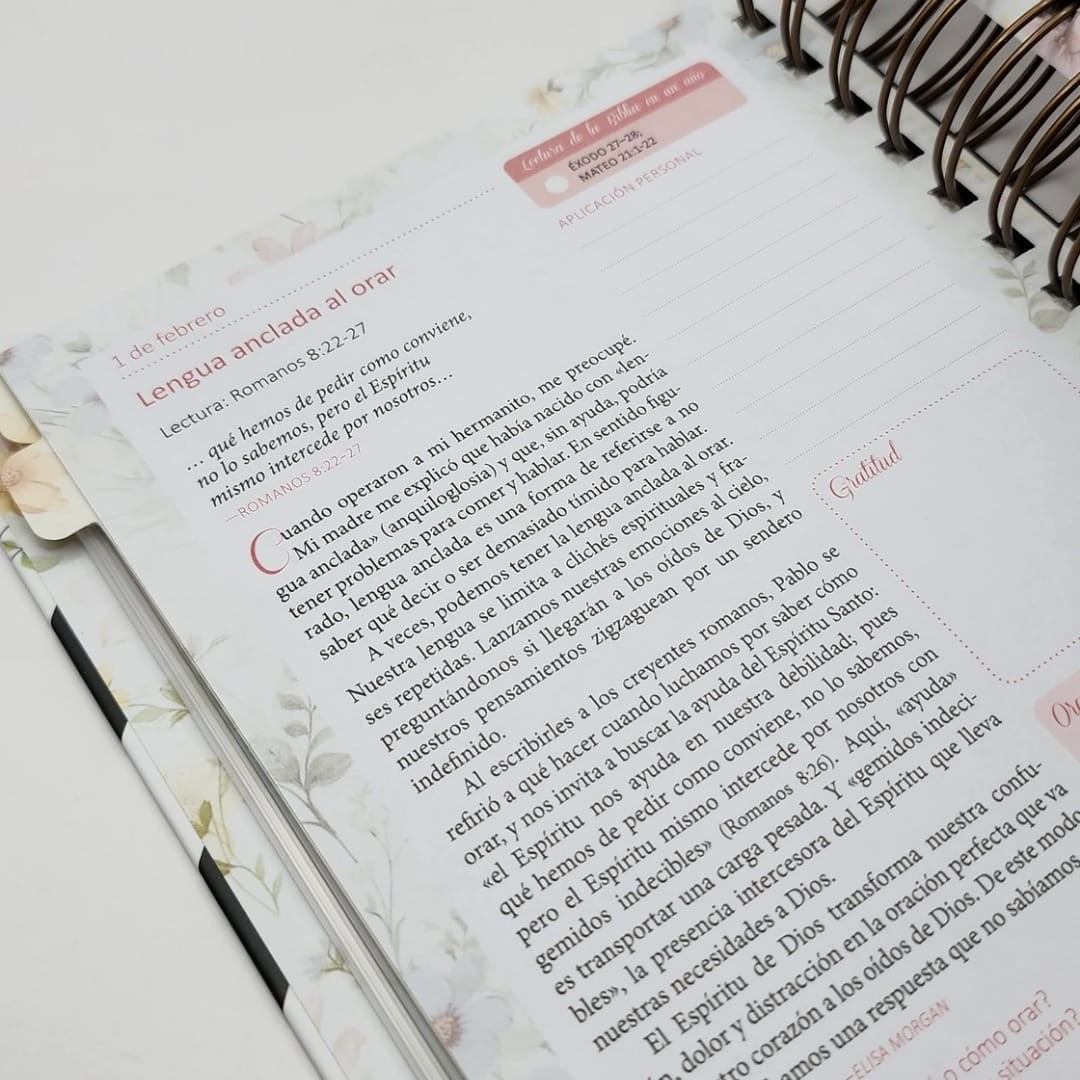 Lectura de la Biblia en un año
ÉXODO 27–28;
MATEO 21:1-22
APLICACIÓN PERSONAL
1 de febrero
Lengua anclada al orar
Lectura: Romanos 8:22-27
… qué hemos de pedir como conviene,
no lo sabemos, pero el Espíritu
mismo intercede por nosotros…
—ROMANOS 8:22-27
Cuando operaron a mi hermanito, me preocupé.
Mi madre me explicó que había nacido con «len-
gua anclada» (anquiloglosia) y que, sin ayuda, podría
tener problemas para comer y hablar. En sentido figu-
rado, lengua anclada es una forma de referirse a no
saber qué decir o ser demasiado tímido para hablar.
A veces, podemos tener la lengua anclada al orar.
Nuestra lengua se limita a clichés espirituales y fra-
ses repetidas. Lanzamos nuestras emociones al cielo,
preguntándonos si llegarán a los oídos de Dios, y
nuestros pensamientos zigzaguean por un sendero
indefinido.
Al escribirles a los creyentes romanos, Pablo se
refirió a qué hacer cuando luchamos por saber cómo
orar, y nos invita a buscar la ayuda del Espíritu Santo:
«el Espíritu nos ayuda en nuestra debilidad; pues
qué hemos de pedir como conviene, no lo sabemos,
pero el Espíritu mismo intercede por nosotros con
gemidos indecibles» (Romanos 8:26). Aquí, «ayuda»
es transportar una carga pesada. Y «gemidos indeci-
bles», la presencia intercesora del Espíritu que lleva
nuestras necesidades a Dios.
El Espíritu de Dios transforma nuestra confu-
n, dolor y distracción en la oración perfecta que va
tro corazón a los oídos de Dios. De este modo
amos una respuesta que no sabíamos
—ELISA MORGAN
o cómo orar?
situación?
Gratitud
Ora